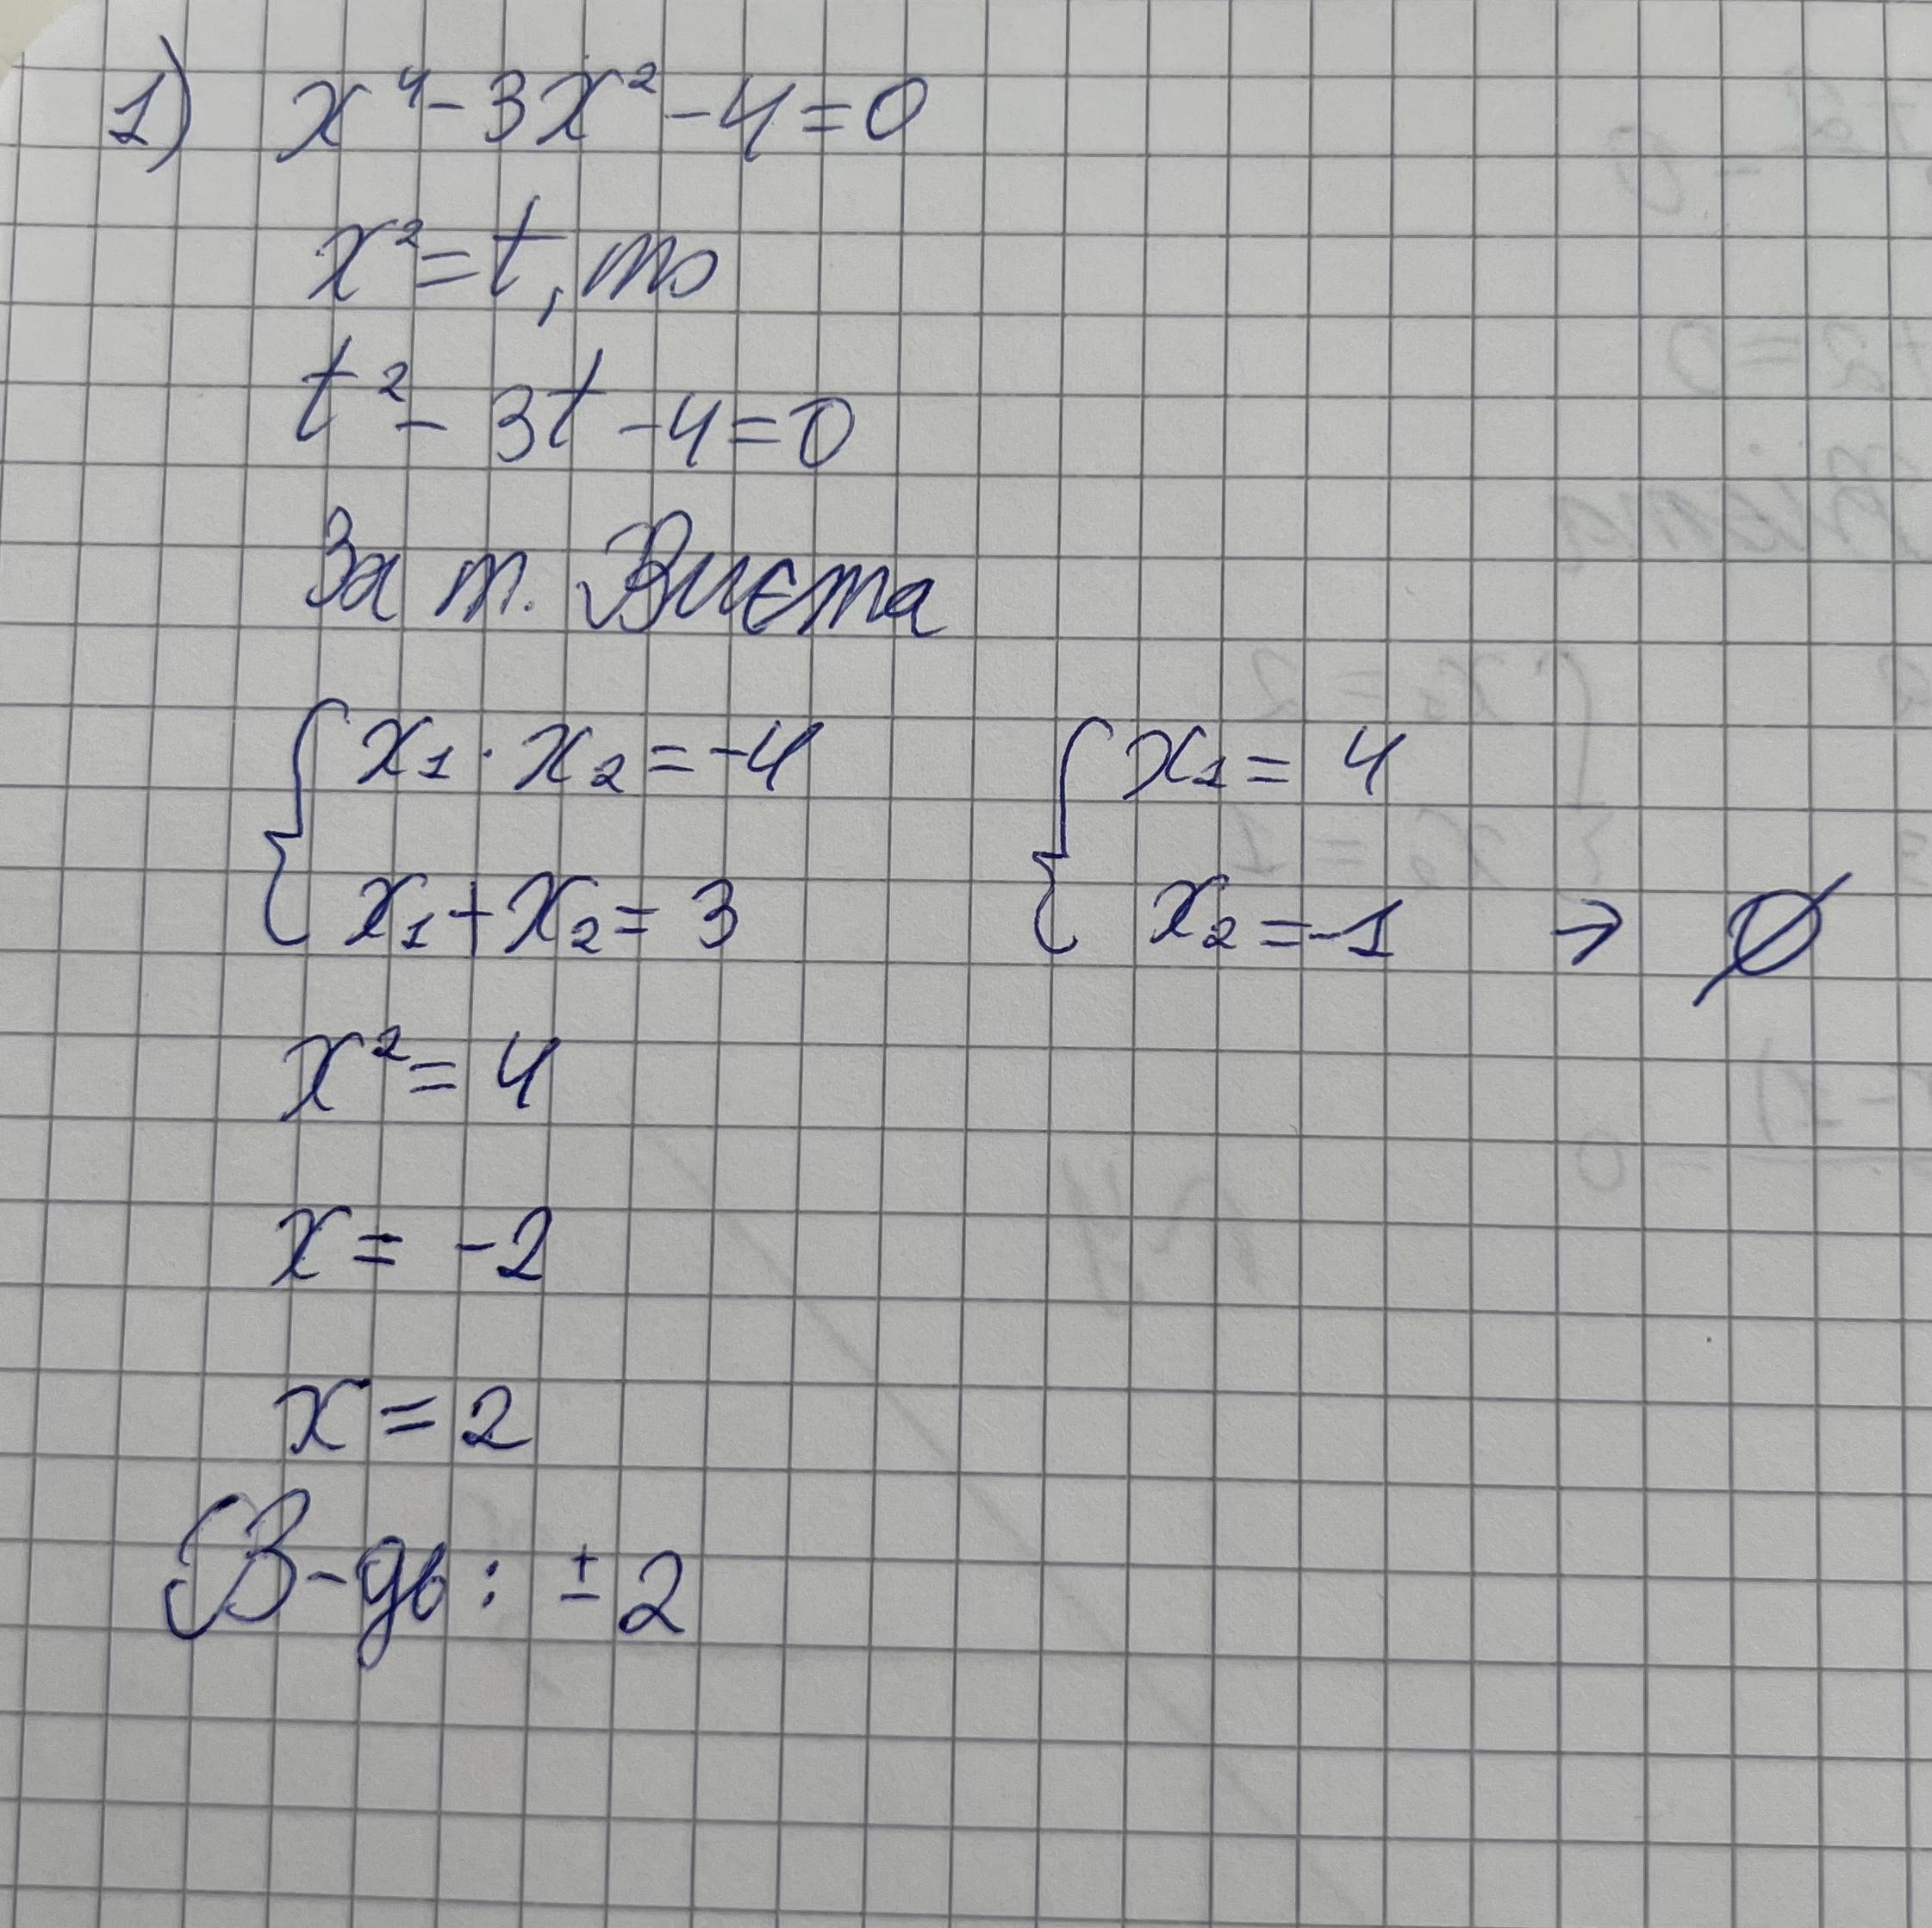 1) x⁴ - 3x² - 4 = 0
x² = t, то
t² - 3t - 4 = 0
За т. Виєта
{ x₁ · x₂ = -4 { x₁ = 4
x₁ + x₂ = 3 x₂ = -1 → ∅
x² = 4
x = -2
x = 2
В-дь: ± 2